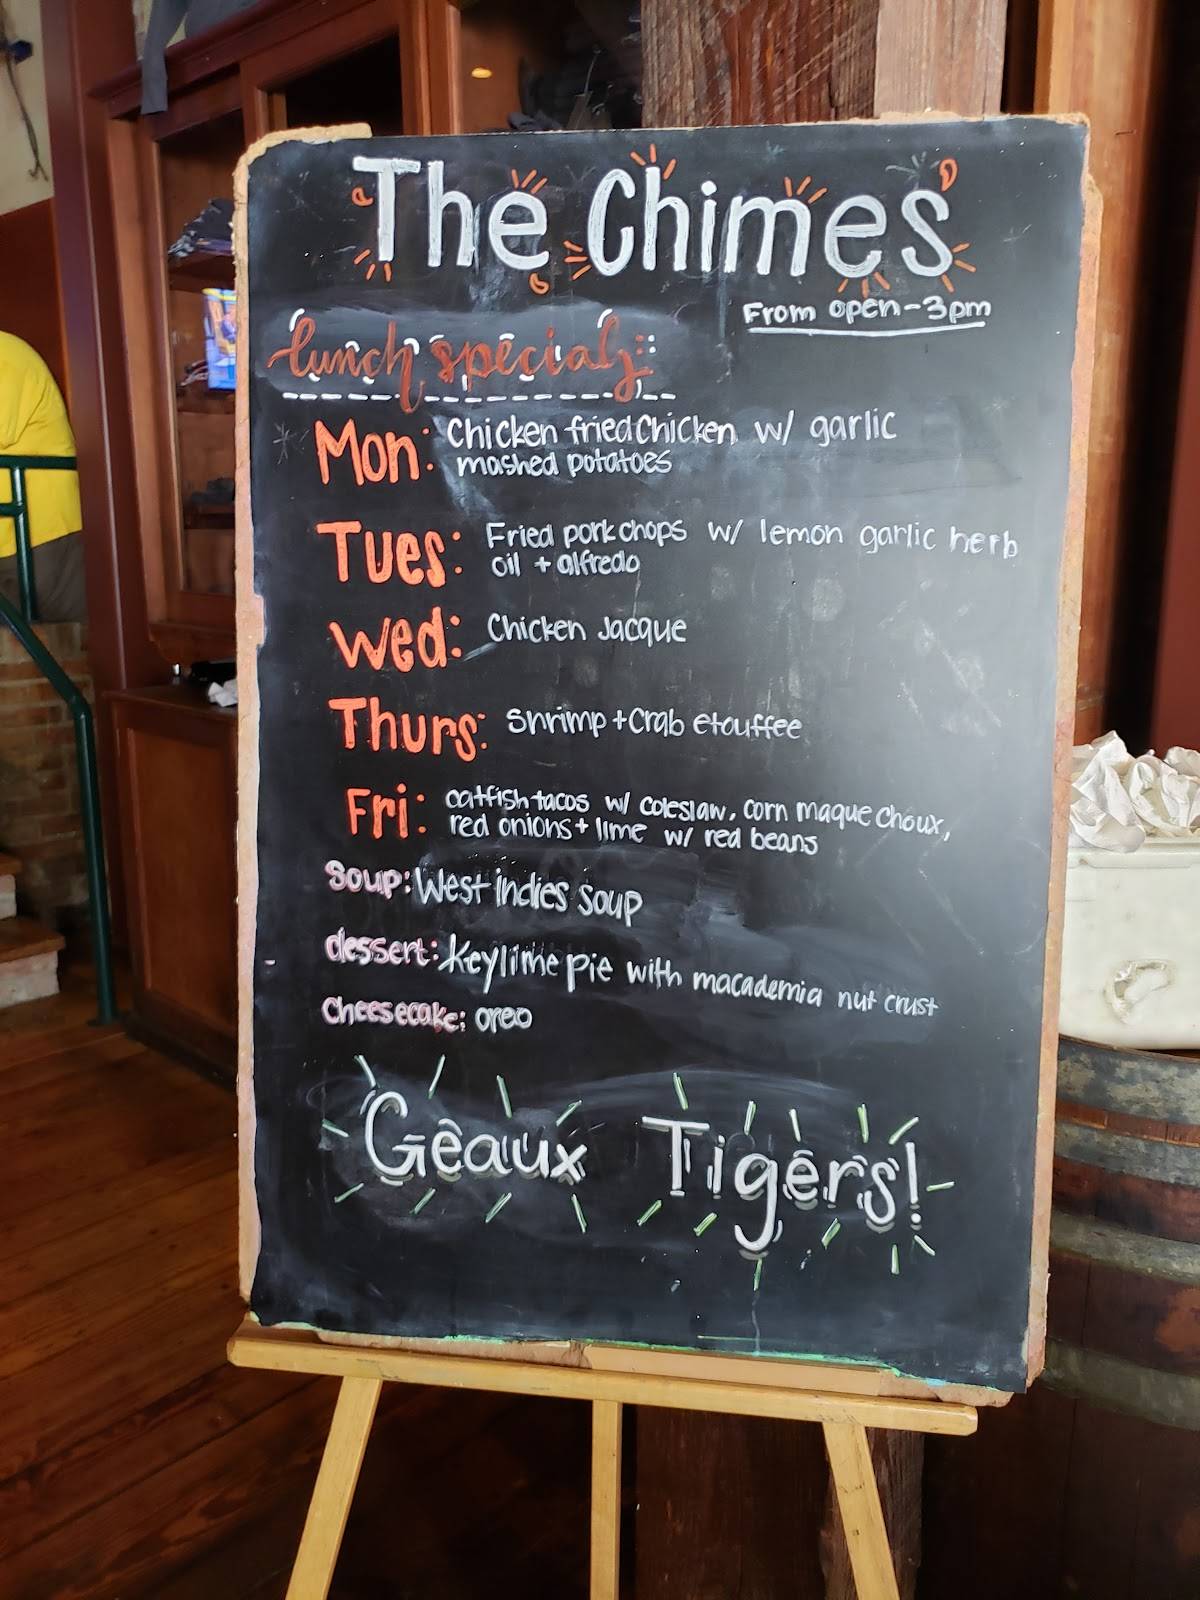 The Chimes
From open-3pm
lunch specials
Mon: Chicken fried Chicken w/ garlic
mashed potatoes
Tues: Fried pork chops w/ lemon garlic herb
oil + alfredo
Wed: Chicken Jacque
Thurs: Shrimp + Crab etouffee
Fri: catfish tacos w/ coleslaw, corn maque choux,
red onions + lime w/ red beans
Soup: West indies Soup
dessert: Key lime pie with macademia nut crust
Cheesecake: oreo
Geaux Tigers!